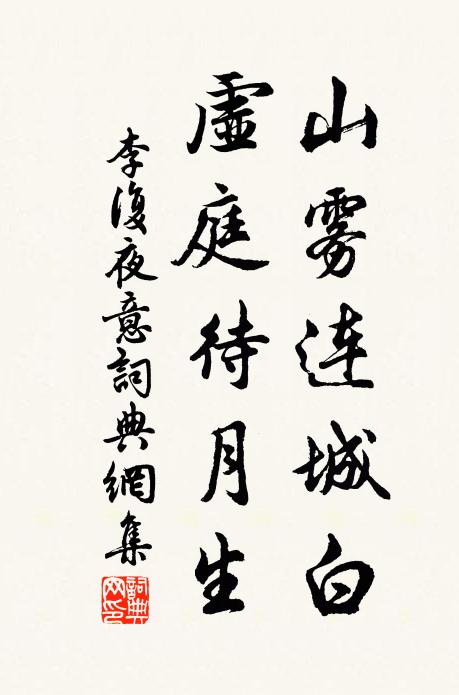 山雾连城白
虚庭待月生
李復夜意詞典網集
詞典网印